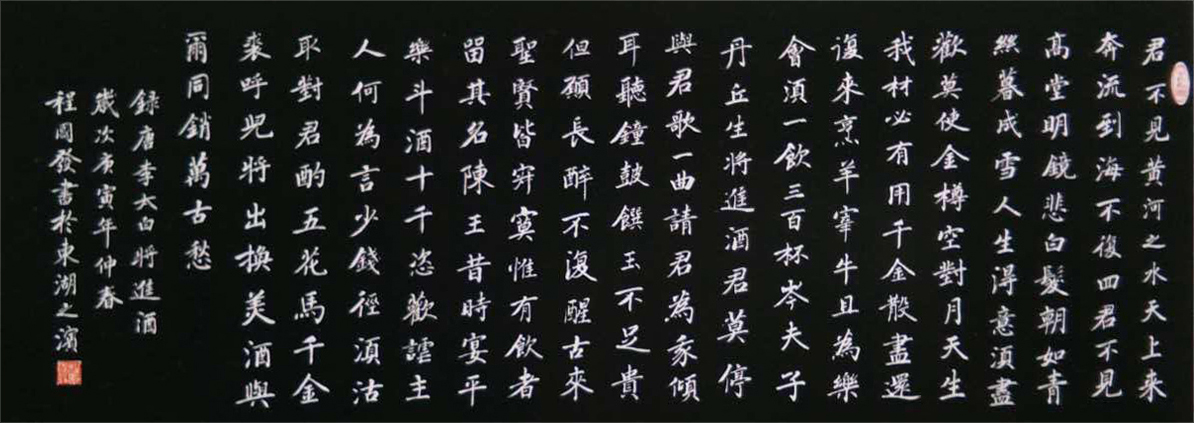 君不見黄河之水天上来
奔流到海不復囬君不見
高堂明鏡悲白髮朝如青
絲暮成雪人生得意須盡
歡莫使金樽空對月天生
我材必有用千金散盡還
復來烹羊宰牛且為樂
會須一飲三百杯岑夫子
丹丘生將進酒君莫停
與君歌一曲請君為我傾
耳聽鐘鼓饌玉不足貴
但願長醉不復醒古來
聖賢皆寂寞惟有飲者
留其名陳王昔時宴平
樂斗酒十千恣歡謔主
人何為言少錢徑須沽
取對君酌五花馬千金
裘呼兒將出換美酒與
爾同銷萬古愁
録唐李太白將進酒
歲次庚寅年仲春
程國發書於東湖之濱